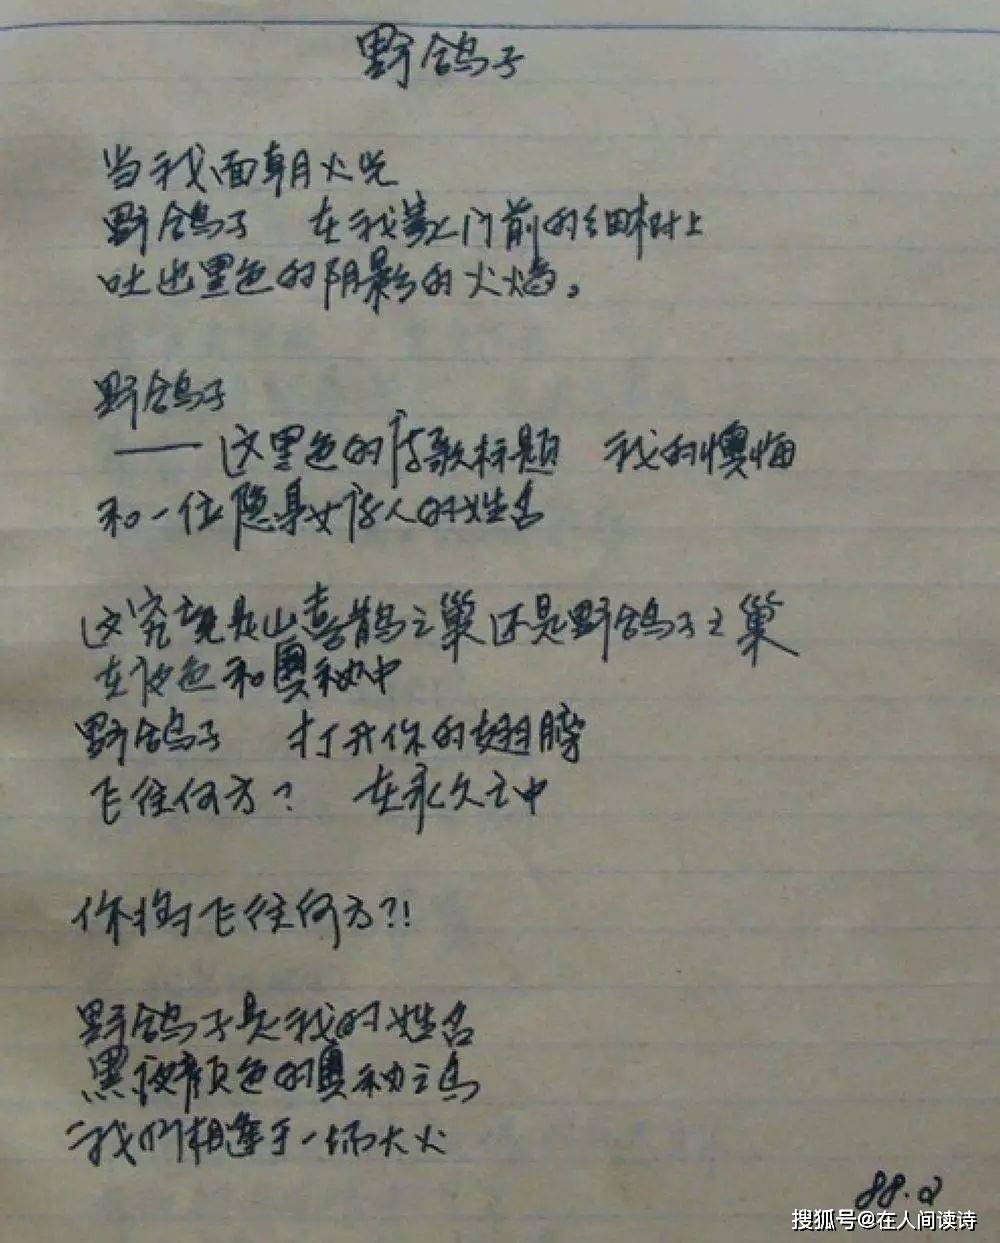 野鸽子
当我面朝火光
野鸽子 在我家门前的细树上
吐出黑色的阴影的火焰。
野鸽子
——这黑色的诗歌标题 我的懊悔
和一位隐身女诗人的姓名
这究竟是山喜鹊之巢还是野鸽子之巢
在夜色和奥秘中
野鸽子 打开你的翅膀
飞往何方? 在永久之中
你将飞往何方?!
野鸽子是我的姓名
黑夜颜色的奥秘之鸟
我们相逢于一场大火
88.2
搜狐号@在人间读诗